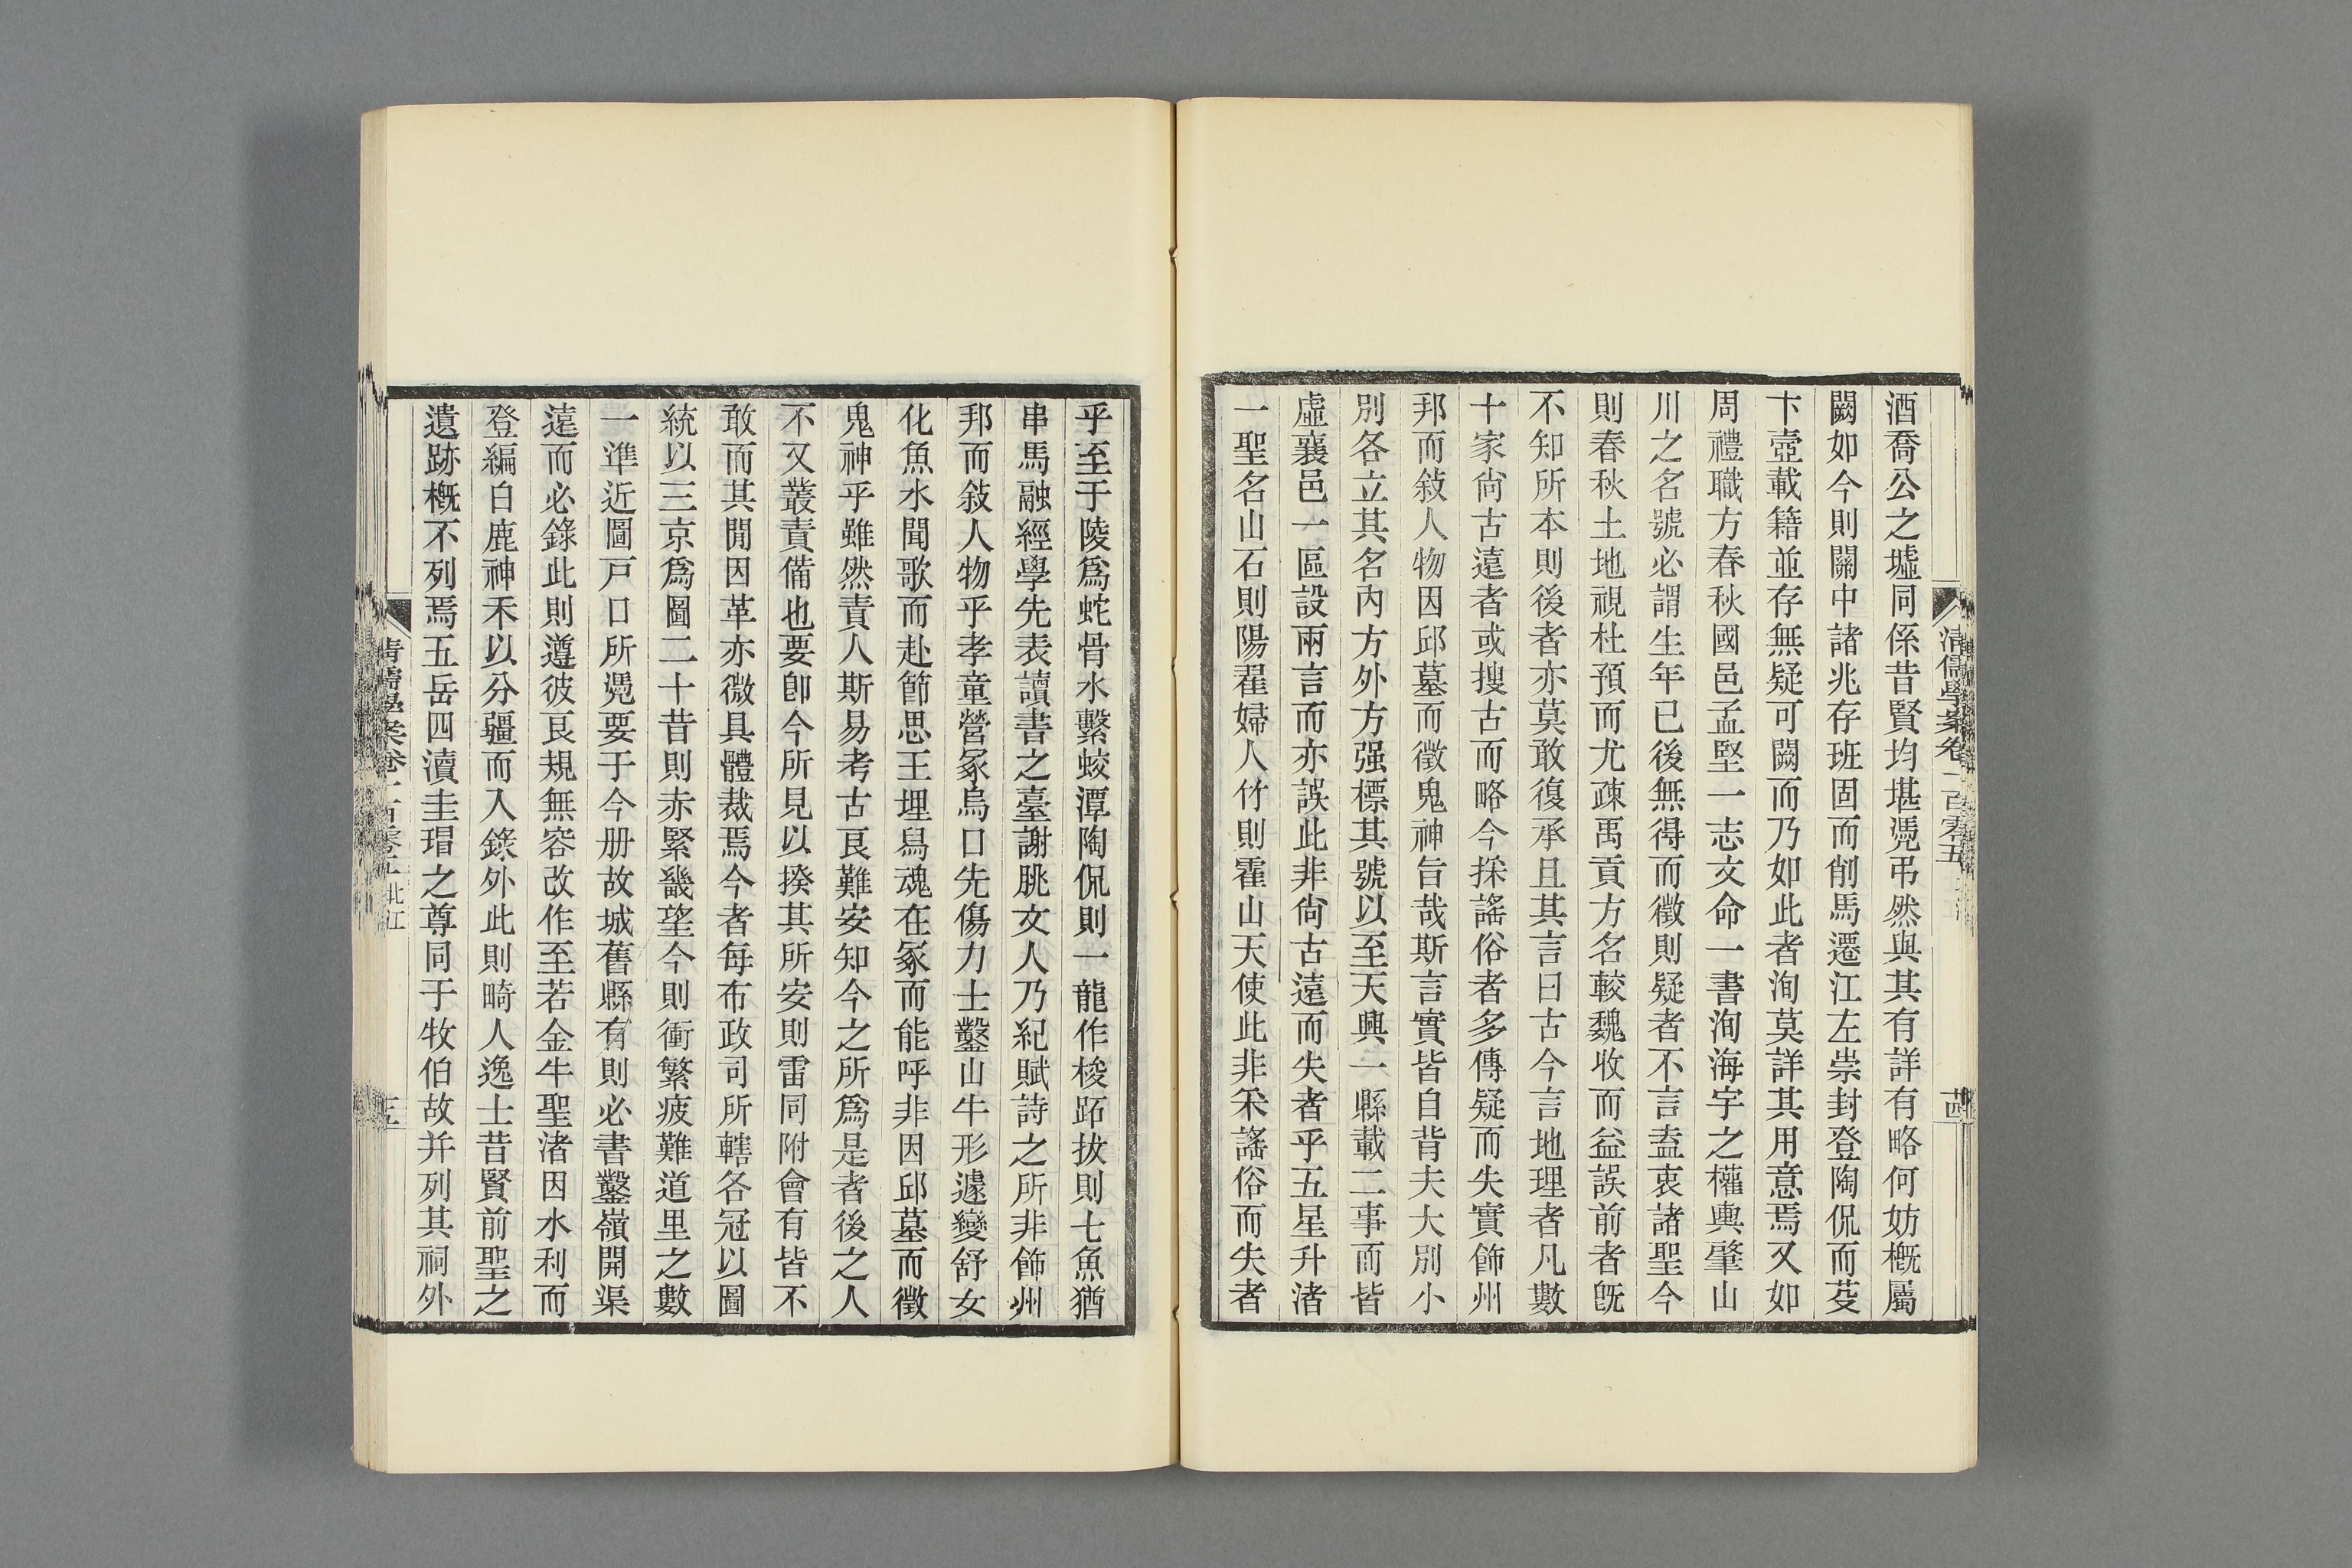 酒喬公之墟同係昔賢均堪憑弔然與其有詳有略何妨槪屬
闕如今則關中諸兆存班固而削馬遷江左崇封登陶侃而芟
卞壼載籍並存無疑可闕而乃如此者洵莫詳其用意焉又如
周禮職方春秋國邑孟堅一志文命一書洵海宇之權輿肇山
川之名號必謂生年已後無得而徵則疑者不言盍衷諸聖今
則春秋土地視杜預而尤疎禹貢方名較魏收而益誤前者旣
不知所本則後者亦莫敢復承且其言曰古今言地理者凡數
十家尙古遠者或搜古而略今採謠俗者多傳疑而失實飾州
邦而敍人物因邱墓而徵鬼神旨哉斯言實皆自背夫大別小
別各立其名內方外方强標其號以至天興一縣載二事而皆
虛襄邑一區設兩言而亦誤此非尙古遠而失者乎五星升渚
一聖名山石則陽翟婦人竹則霍山天使此非采謠俗而失者
清儒學案卷一百零五
乎至于陵爲蛇骨水繫蛟潭陶侃則一龍作梭跖拔則七魚猶
串馬融經學先表讀書之臺謝脁文人乃紀賦詩之所非飾州
邦而敍人物乎孝童營冢烏口先傷力士鑿山牛形遽變舒女
化魚水聞歌而赴節思王埋舄魂在冢而能呼非因邱墓而徵
鬼神乎雖然責人斯易考古艮難安知今之所爲是者後之人
不又叢責備也要卽今所見以揆其所安則雷同附會有皆不
敢而其閒因革亦微具體裁焉今者每布政司所轄各冠以圖
統以三京爲圖二十昔則赤緊畿望今則衝繁疲難道里之數
一準近圖戸口所憑要于今册故城舊縣有則必書鑿嶺開渠
遠而必錄此則遵彼艮規無容改作至若金牛聖渚因水利而
登編白鹿神禾以分疆而入錄外此則畸人逸士昔賢前聖之
遺跡槪不列焉五岳四瀆圭瑁之尊同于牧伯故并列其祠外
清儒學案卷一百零五 北江